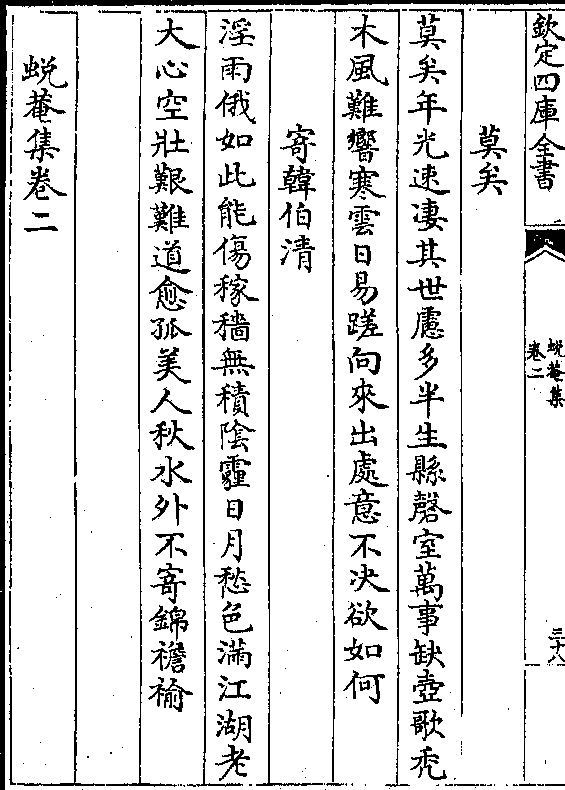 欽定四庫全書
蜕菴集
卷二
三十八
莫矣
莫矣年光速凄其世慮多半生縣磬室萬事缺壺歌禿
木風難響寒雲日易蹉向來出處意不決欲如何
寄韓伯清
淫雨俄如此能傷稼穡無積陰霾日月愁色滿江湖老
大心空壯艱難道愈孤美人秋水外不寄錦襜褕
蜕菴集卷二